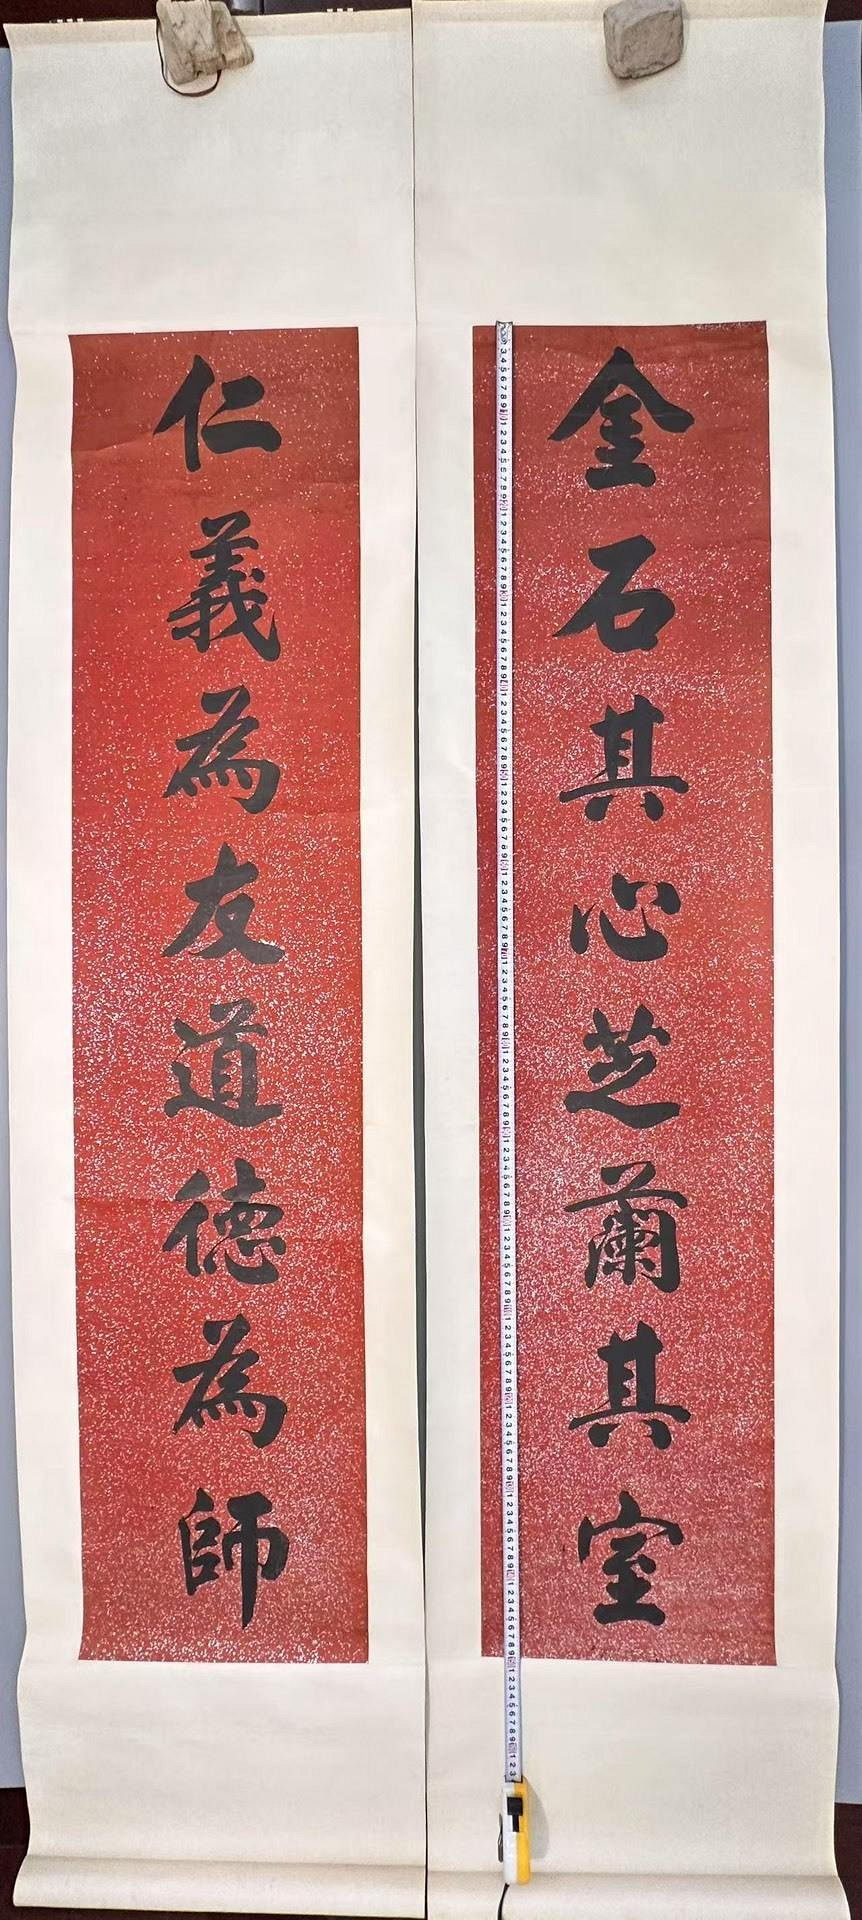 金石其心芝蘭其室
仁義為友道德為師